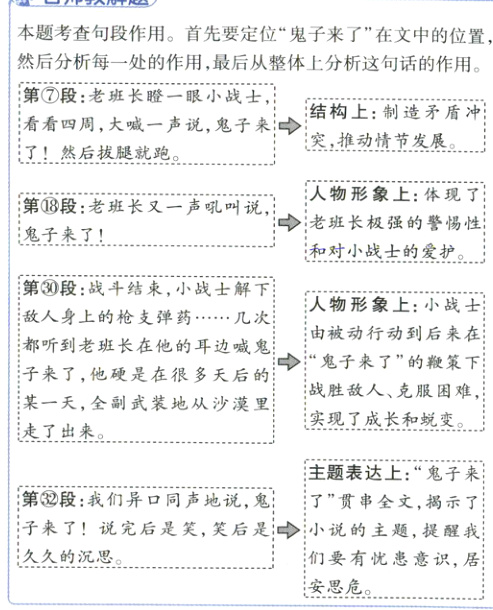 名师教解题
本题考查句段作用。首先要定位“鬼子来了”在文中的位置,
然后分析每一处的作用,最后从整体上分析这句话的作用。
第⑦段:老班长瞪一眼小战士,
看看四周,大喊一声说,鬼子来
了!然后拔腿就跑。
结构上:制造矛盾冲
突,推动情节发展。
第⑱段:老班长又一声吼叫说,
鬼子来了!
人物形象上:体现了
老班长极强的警惕性
和对小战士的爱护。
第㉚段:战斗结束,小战士解下
敌人身上的枪支弹药……几次
都听到老班长在他的耳边喊鬼
子来了,他硬是在很多天后的
某一天,全副武装地从沙漠里
走了出来。
人物形象上:小战士
由被动行动到后来在
“鬼子来了”的鞭策下
战胜敌人、克服困难,
实现了成长和蜕变。
第㉜段:我们异口同声地说,鬼
子来了!说完后是笑,笑后是
久久的沉思。
主题表达上:“鬼子来
了”贯串全文,揭示了
小说的主题,提醒我
们要有忧患意识,居
安思危。